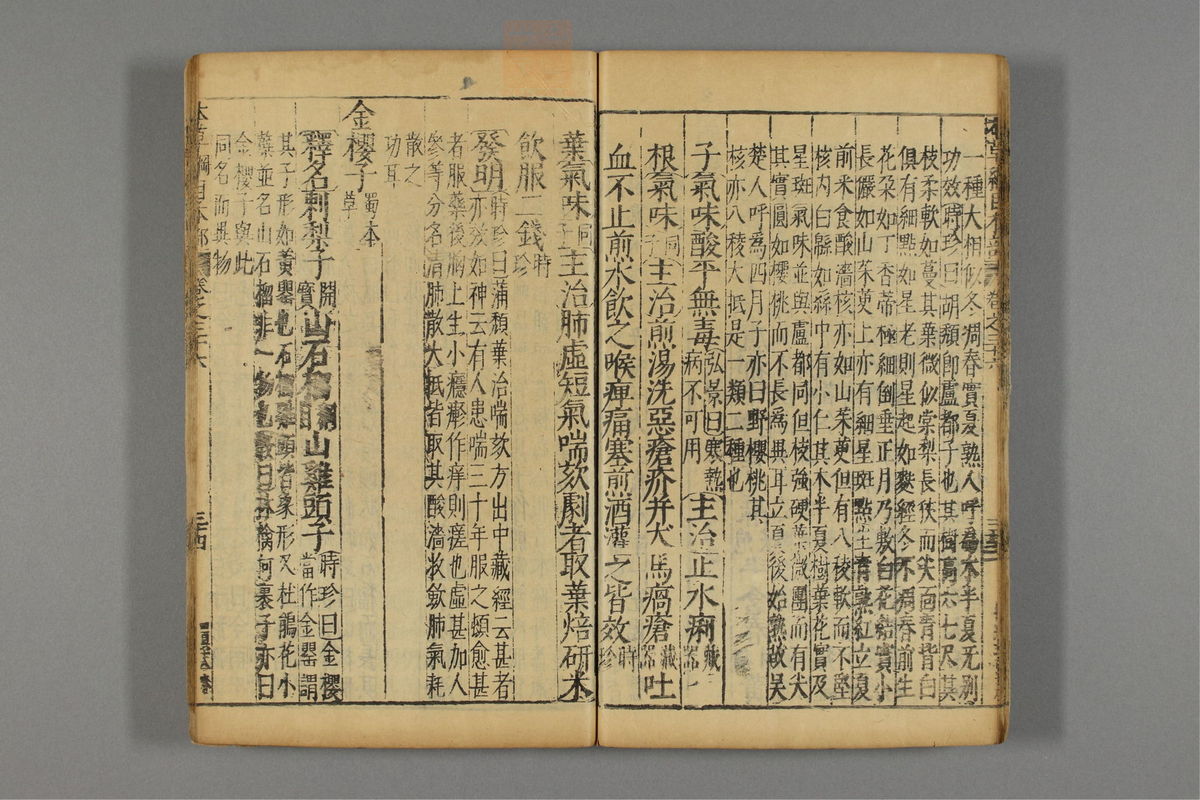 一種大相似冬凋春實夏熟人呼爲木半夏无別
功效時珍曰胡頹即盧都子也其樹高六七尺其
枝柔軟如蔓其葉微似棠梨長狹而尖面青背白
俱有細點如星老則星起如麩經冬不凋春前生
花朵如丁香蒂極細倒垂正月乃敷白花結實小
長儼如山茱萸上亦有細星斑點生青熟紅立夏
前采食酸濇核亦如山茱萸但有八稜軟而不堅
核内白緜如絲中有小仁其木半夏樹葉花實及
星斑氣味並與盧都同但枝強硬葉微團而有尖
其實圓如櫻桃而不長爲異耳立夏後始熟故吳
楚人呼爲四月子亦曰野櫻桃其
核亦八稜大抵是一類二種也
子氣味酸平無毒弘景曰寒熱病不可用主治止水痢藏器
根氣味同子主治煎湯洗惡瘡疥并犬馬瘑瘡藏器吐
血不止煎水飲之喉痺痛塞煎酒灌之皆效時珍
葉氣味同子主治肺虛短氣喘欬劇者取葉焙研米
飲服二錢時珍
發明時珍曰蒲頹葉治喘欬方出中藏經云甚者
亦效如神云有人患喘三十年服之頓愈甚
者服藥後胸上生小癮㾦作痒則瘥也虛甚加人
參等分名清肺散大抵皆取其酸濇收斂肺氣耗
散之
功耳
金櫻子蜀本草
釋名刺梨子開寶山石榴山雞頭子時珍曰金櫻當作金罌謂
其子形如黃罌也石榴雞頭皆象形又杜鵑花小
蘗並名山石榴非一物也
金櫻子與此
同名而異物
本草綱目木部 卷之三十六 三四